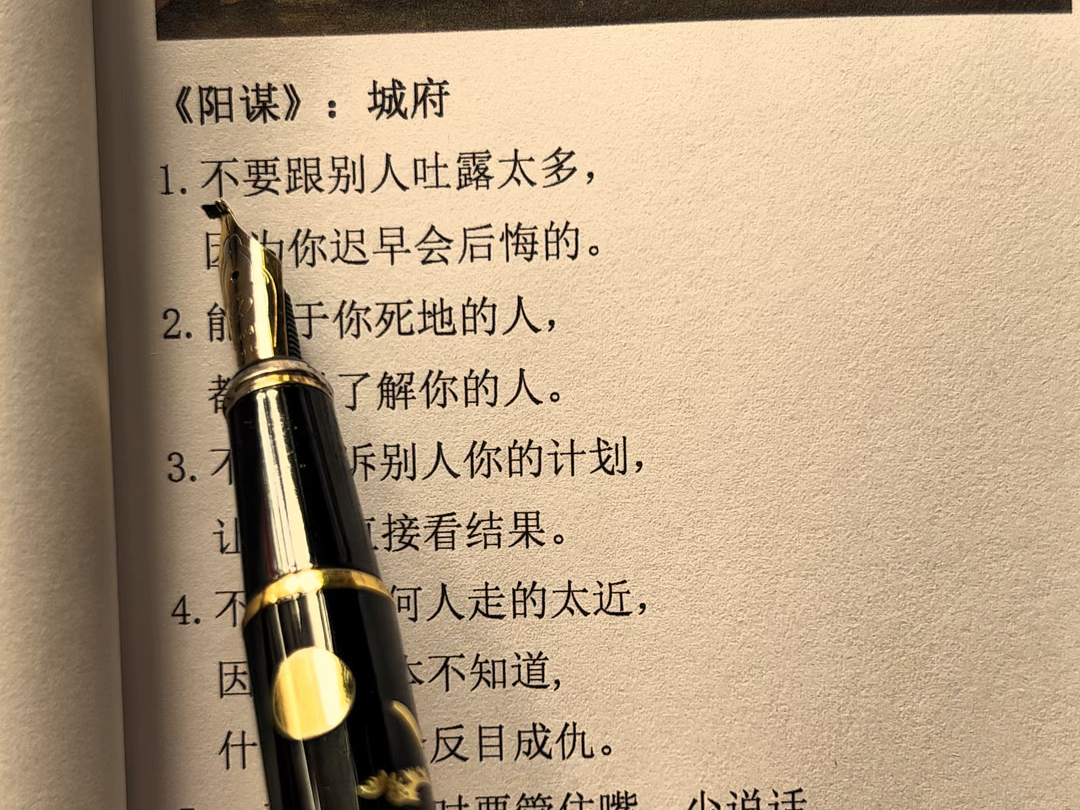 《阳谋》：城府
1.不要跟别人吐露太多，
因为你迟早会后悔的。
2.能于你死地的人，
都了解你的人。
3.不诉别人你的计划，
让直接看结果。
4.不何人走的太近，
因本不知道,
什反目成仇。
时要管住嘴，少说话